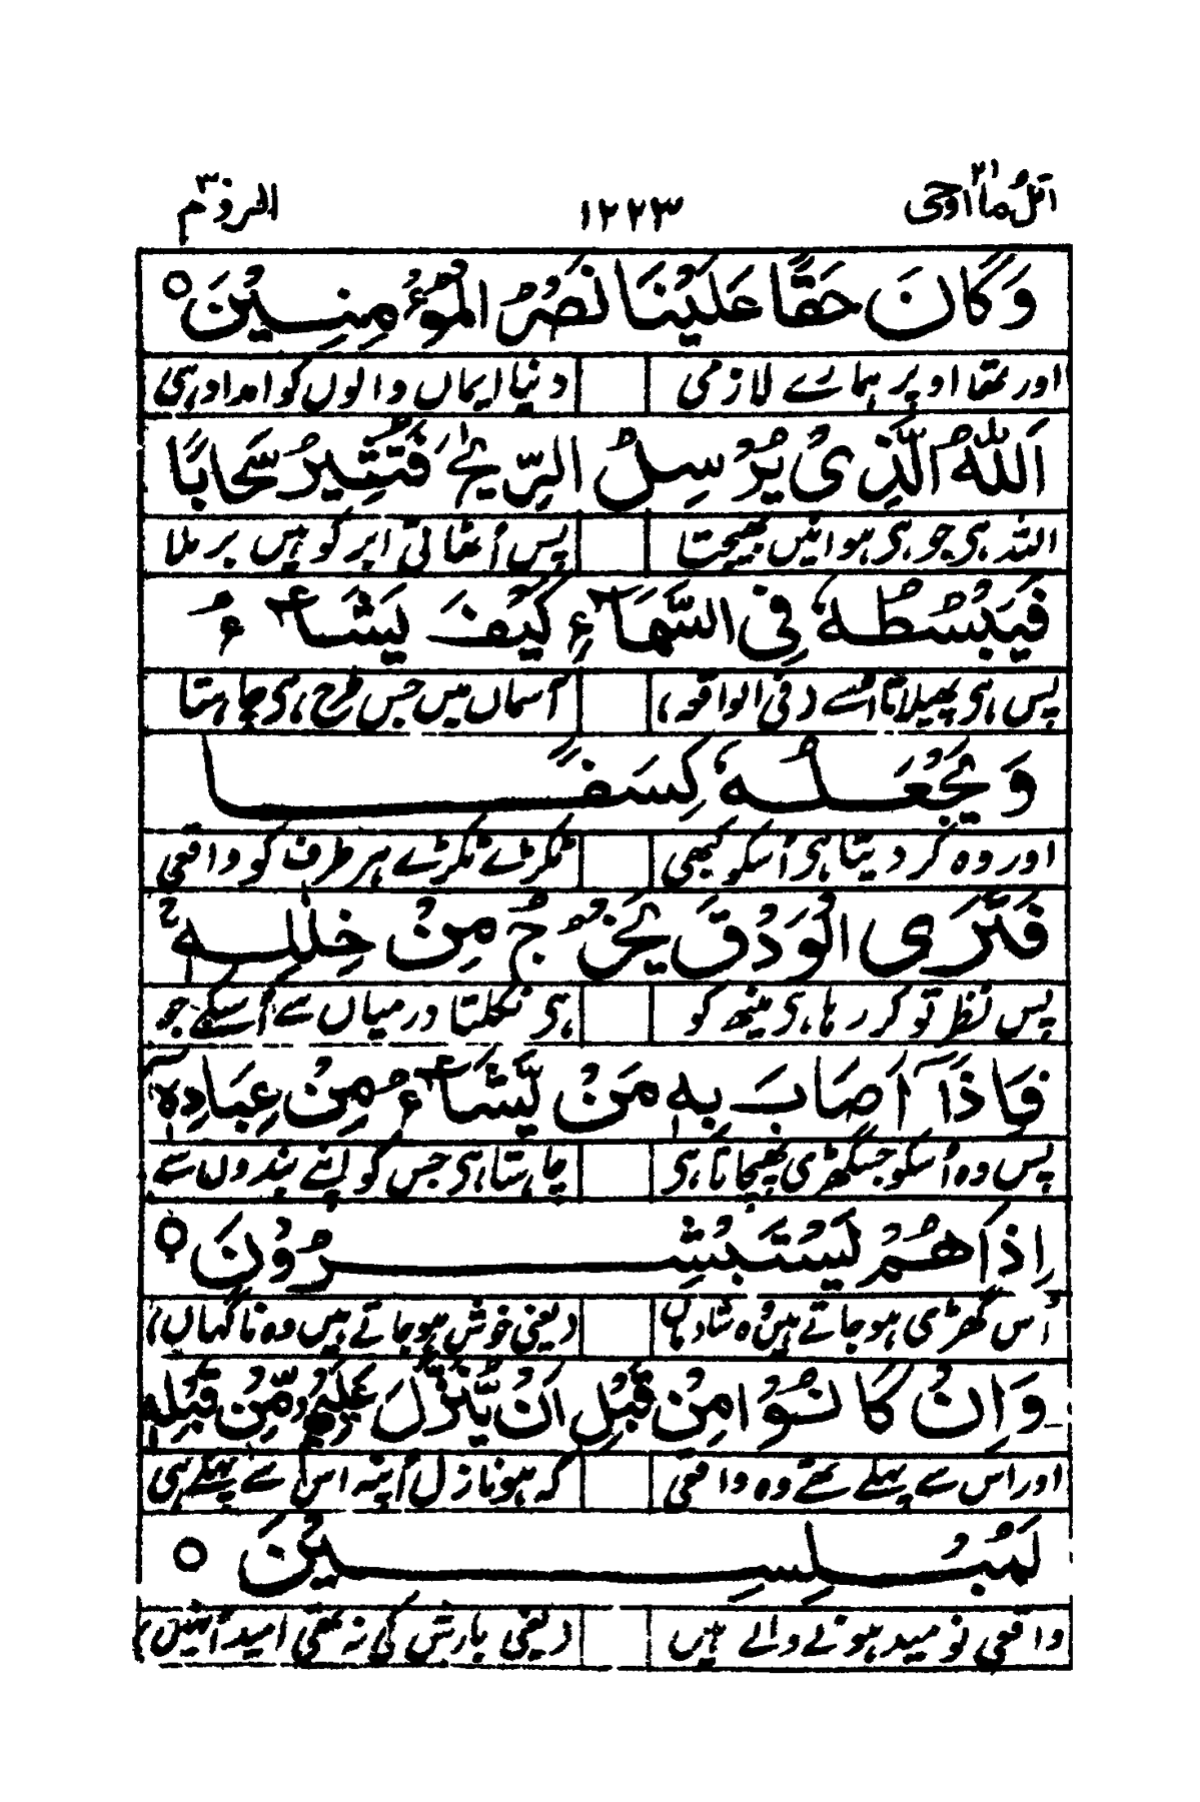 اتل ما اوحی ۲۱ ۱۲۲۳ الروم ۳۰
وَكَانَ حَقًّا عَلَيْنَا نَصْرُ الْمُؤْمِنِيْنَ ○
اور تھا اوپر ہمارے لازمی دنیا ایماں والوں کو امداد ہی
اَللّٰهُ الَّذِىْ يُرْسِلُ الرِّيٰحَ فَتُثِيْرُ سَحَابًا
اللہ ہی جو ہی ہوائیں بھیجتا پس اُٹھاتی ابر کو ہیں بر ملا
فَيَبْسُطُهٗ فِى السَّمَآءِ كَيْفَ يَشَآءُ
پس ہی پھیلاتا اُسے (فی الواقعہ) آسماں میں جس طرح ہی چاہتا
وَيَجْعَلُهٗ كِسَفًا
اور وہ کر دیتا ہی اُسکو کبھی ٹکڑے ٹکڑے ہر طرف کو واقعی
فَتَرَى الْوَدْقَ يَخْرُجُ مِنْ خِلٰلِهٖ
پس نظر تو کر رہا ہی مینھ کو ہی نکلتا درمیاں سے اُسکے جو
فَاِذَآ اَصَابَ بِهٖ مَنْ يَّشَآءُ مِنْ عِبَادِهٖٓ
پس وہ اُسکو جسگھڑی پہنچاتا ہی چاہتا ہی جس کو اپنے بندوں سے
اِذَا هُمْ يَسْتَبْشِرُوْنَ ○
اُس گھڑی ہو جاتے ہیں وہ شادماں (یعنی خوش ہو جاتے ہیں وہ ناگہاں)
وَاِنْ كَانُوْا مِنْ قَبْلِ اَنْ يُّنَزَّلَ عَلَيْهِمْ مِّنْ قَبْلِهٖ
اور اس سے پہلے تھے وہ واقعی کہ ہو نازل اُپنہ اس سے پہلے ہی
لَمُبْلِسِيْنَ ○
واقعی نومید ہونے والے ہیں (یعنی بارش کی نہ تھی امید اُنہیں)